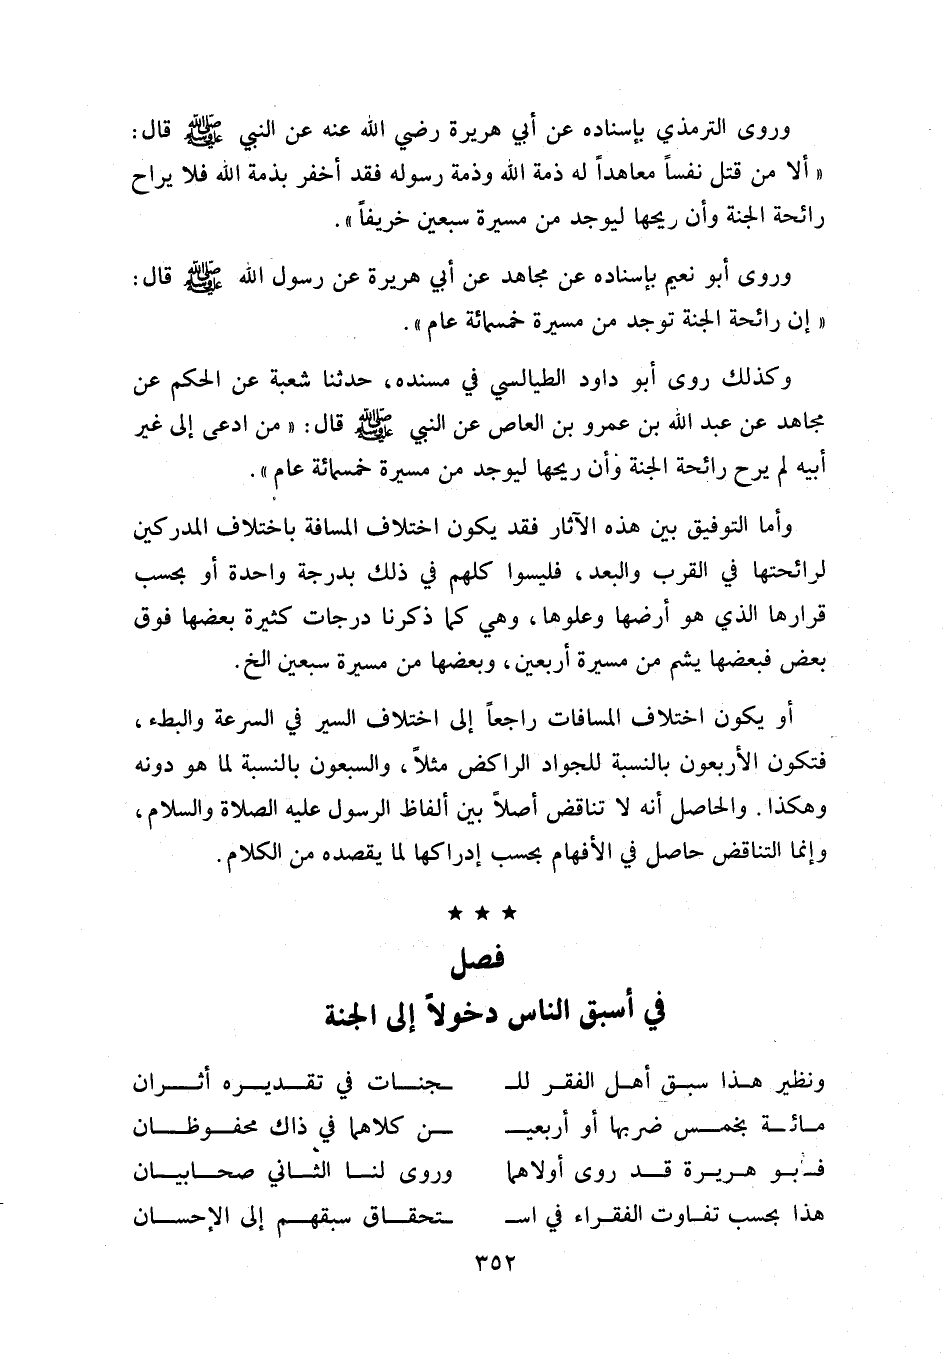 وروى الترمذي بإسناده عن أبي هريرة رضي الله عنه عن النبي ﷺ قال:
« ألا من قتل نفساً معاهداً له ذمة الله وذمة رسوله فقد أخفر بذمة الله فلا يراح
رائحة الجنة وأن ريحها ليوجد من مسيرة سبعين خريفاً ».
وروى أبو نعيم بإسناده عن مجاهد عن أبي هريرة عن رسول الله ﷺ قال:
« إن رائحة الجنة توجد من مسيرة خمسمائة عام ».
وكذلك روى أبو داود الطيالسي في مسنده، حدثنا شعبة عن الحكم عن
مجاهد عن عبد الله بن عمرو بن العاص عن النبي ﷺ قال: « من ادعى إلى غير
أبيه لم يرح رائحة الجنة وأن ريحها ليوجد من مسيرة خمسمائة عام ».
وأما التوفيق بين هذه الآثار فقد يكون اختلاف المسافة باختلاف المدركين
لرائحتها في القرب والبعد، فليسوا كلهم في ذلك بدرجة واحدة أو بحسب
قرارها الذي هو أرضها وعلوها، وهي كما ذكرنا درجات كثيرة بعضها فوق
بعض فبعضها يشم من مسيرة أربعين، وبعضها من مسيرة سبعين الخ.
أو يكون اختلاف المسافات راجعاً إلى اختلاف السير في السرعة والبطء،
فتكون الأربعون بالنسبة للجواد الراكض مثلاً، والسبعون بالنسبة لما هو دونه
وهكذا. والحاصل أنه لا تناقض أصلاً بين ألفاظ الرسول عليه الصلاة والسلام،
وإنما التناقض حاصل في الأفهام بحسب إدراكها لما يقصده من الكلام.
★ ★ ★
فصل
في أسبق الناس دخولاً إلى الجنة
ونظير هـذا سبـق أهـل الفقـر للـ ـجنـات في تقـديـره أثـران
مـائـة بخمـس ضربها أو أربعيـ ـن كلاهما في ذاك محفـوظـان
فـأبـو هـريـرة قـد روى أولاهما وروى لنـا الثـاني صحـابيـان
هذا بحسب تفـاوت الفقـراء في اسـ ـتحقـاق سبقهـم إلى الإحسـان
٣٥٢